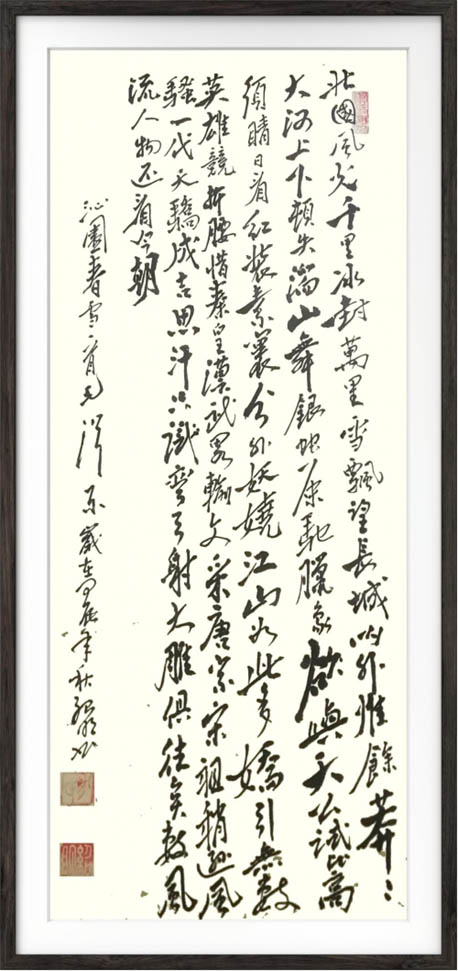 北國風光千里冰封萬里雪飄望長城内外惟餘莽〻
大河上下頓失滔山舞銀蛇原馳臘象欲與天公試比高
須晴日看紅裝素裹分外妖嬈江山如此多嬌引無數
英雄競折腰惜秦皇漢武略輸文采唐宗宋祖稍遜風
騷一代天驕成吉思汗只識彎弓射大雕俱往矣數風
流人物还看今朝
沁園春雪一首毛澤东歲在辰年秋紹明书
紹明